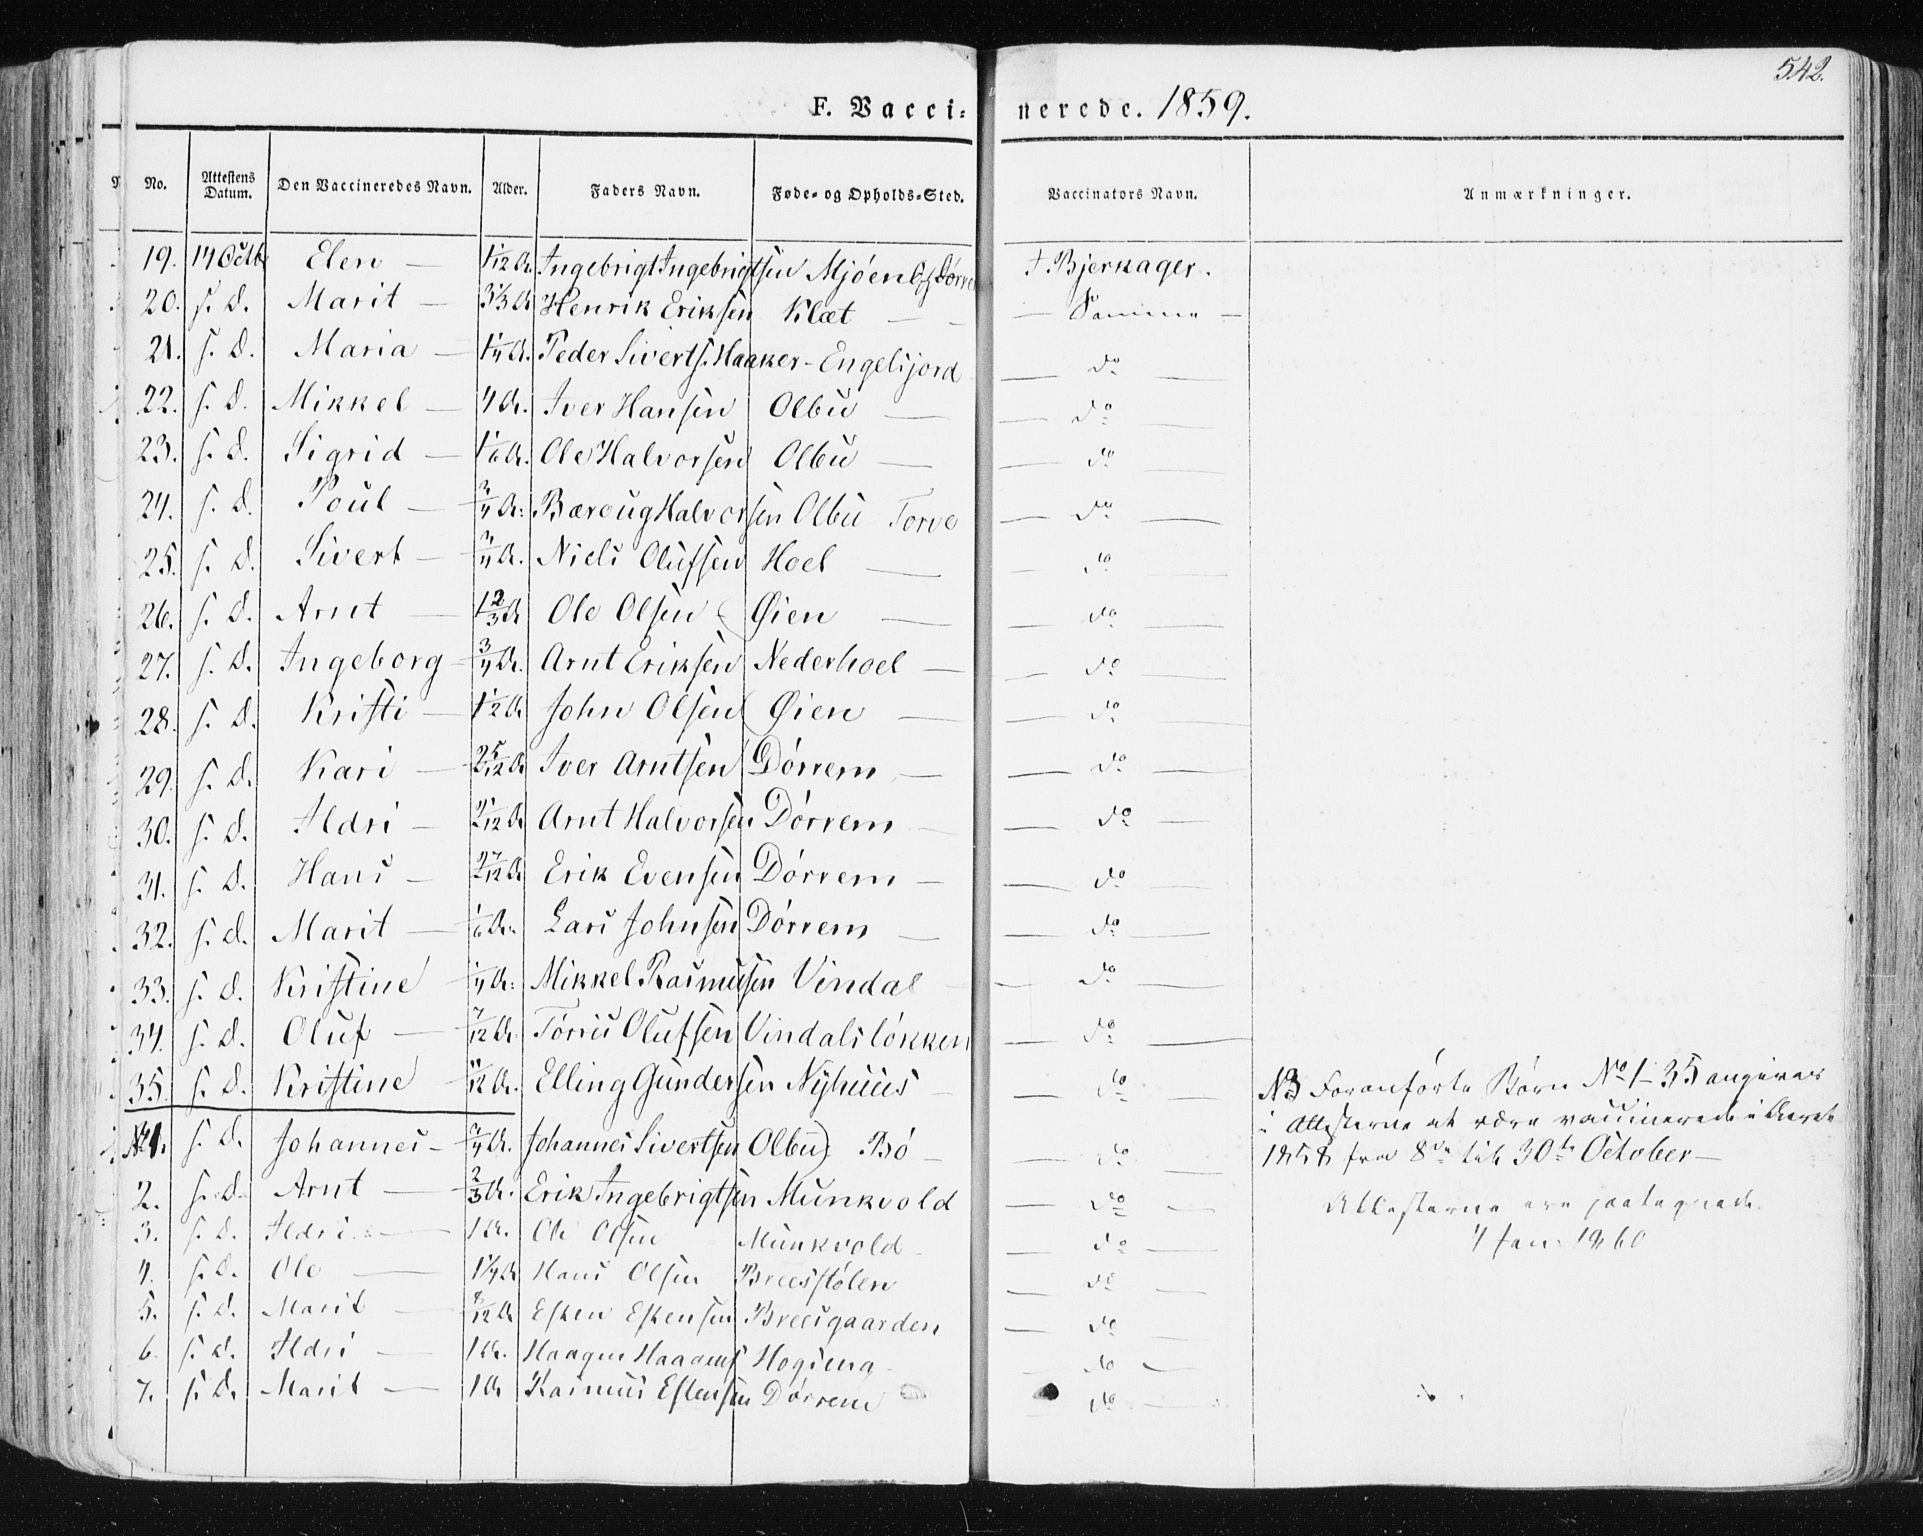 542.
F. Vacci- nerede. 1859.
No. Attestens Datum. Den Vaccineredes Navn. Alder. Faders Navn. Føde- og Opholds-Sted. Vaccinators Navn. Anmærkninger.
19. 14 Octb Elen — 1 1/12 A. Ingebrigt Ingebrigtsen Mjøen Dørrem J. Bjerkager.
20. s. D. Marit — 3 1/3 A Henrik Eriksen Klæt — — Samme —
21. s. D. Maria — 1 1/4 A. Peder Siverts. Haaker - Engelsjord — do —
22. s. D. Mikkel — 4 A. Iver Hansen Olbu — — do —
23. s. D. Sigrid — 1 1/6 A. Ole Halvorsen Olbu — — do —
24. s. D. Poul — 3/4 A. Baroug Halvorsen Olbu Torve — do —
25. s. D. Sivert — 3/4 A. Niels Olufsen Hoel — — do —
26. s. D. Arnt — 1 2/3 A Ole Olsen Øien — — do —
27. s. D. Ingeborg — 3/4 A. Arnt Eriksen Nederhoel — — do —
28. s. D. Kristi — 1 1/2 A John Olsen Øien — — do —
29. s. D. Kari — 2 5/12 A Iver Arntsen Dørrem — — do —
30. s. D. Ildri — A Arnt Halvorsen Dørrem — — do —
31. s. D. Hans — 2 7/12 A Erik Evensen Dørrem — — do —
32. s. d. Marit — 1/6 A. Lars Johnsen Dørrem — — do —
33. s. D. Kristine 1/4 A. Mikkel Rasmussen Vindal — — do —
34. s. D. Oluf — 7/12 A. Tørris Olufsen Vindalsløkken — do —
35. s. D. Kristine 11/12 A. Elling Gundersen Nyhuus — — do —
NB Foranførte Børn No 1-35 angives
i Attesterne at være vaccinerede i Aaret
1858 fra 8de til 30te October —
No 1. s. D. Johannes — 3/4 A. Johannes Sivertsen Olbu) Bö — — do —
2. s. D. Arnt — 2/3 A. Erik Ingebrigtsen Munkvold — do —
Attesterne ere paategnede
4 Jan. 1860
3. s. D. Ildri — 1 A. Ole Olsen Munkvold — do —
4. s. D. Ole — 1 1/4 A Hans Olsen Breesstølen — do
5. s. D. Marit — 8/12 A Esten Estensen Breesgaarden — do —
6. s. d. Ildri — 1 A. Haagen Haagens Hogseng — do —
7. s. D. Marit — 1 A Rasmus Estensen Dørrem do